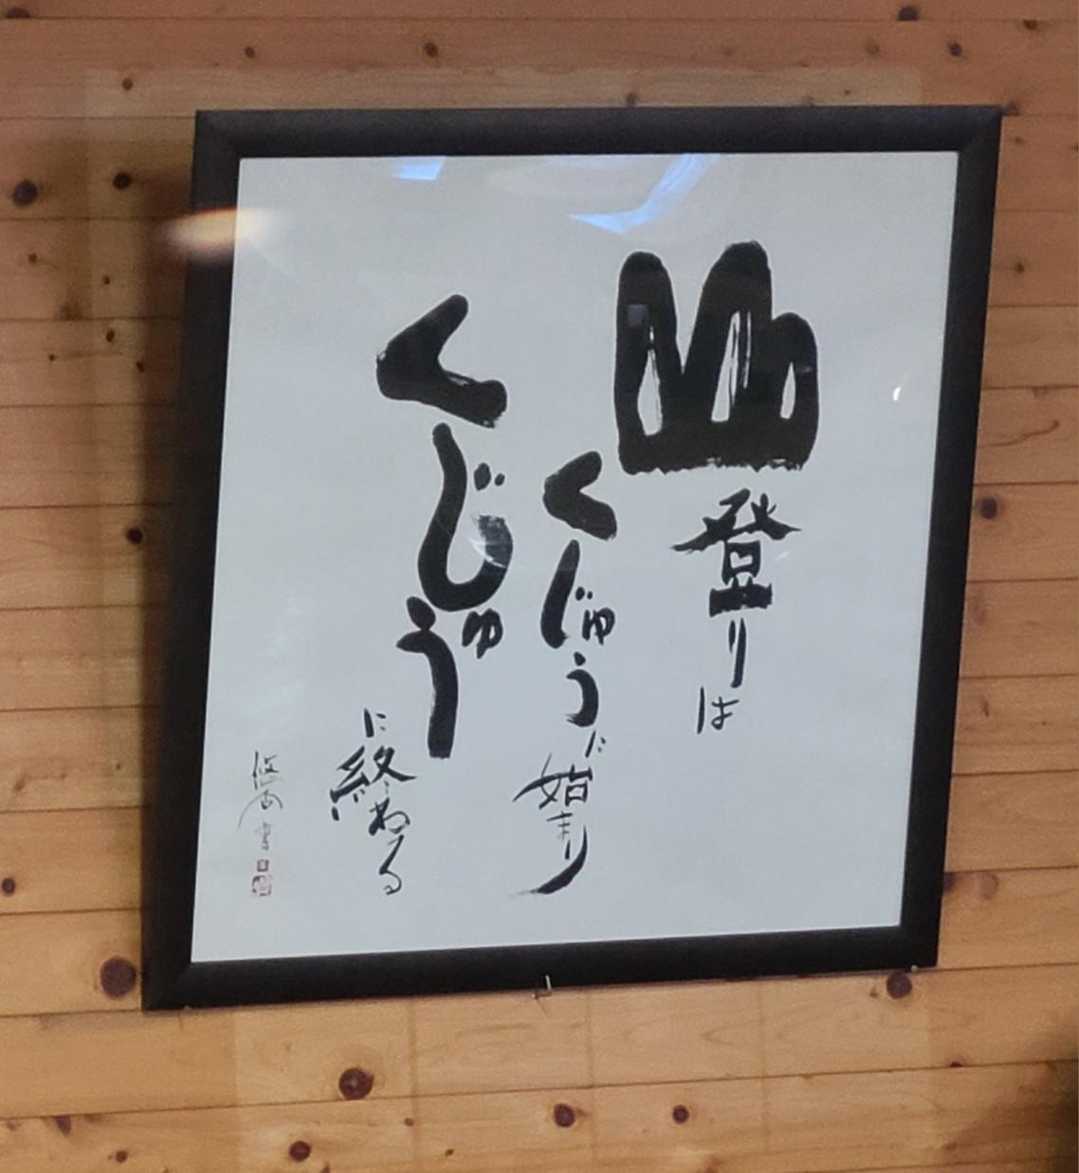 山登りは
くじゅうに始まり
くじゅうに終わる